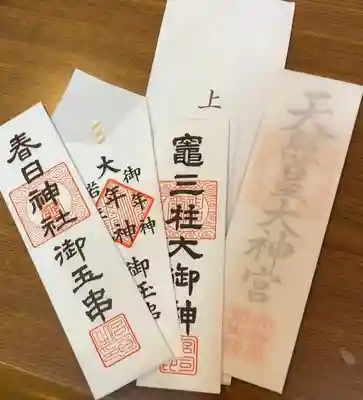 春日神社御玉串
御年神
大年神
御玉串
竈三柱大御神
上
天照皇大神宮